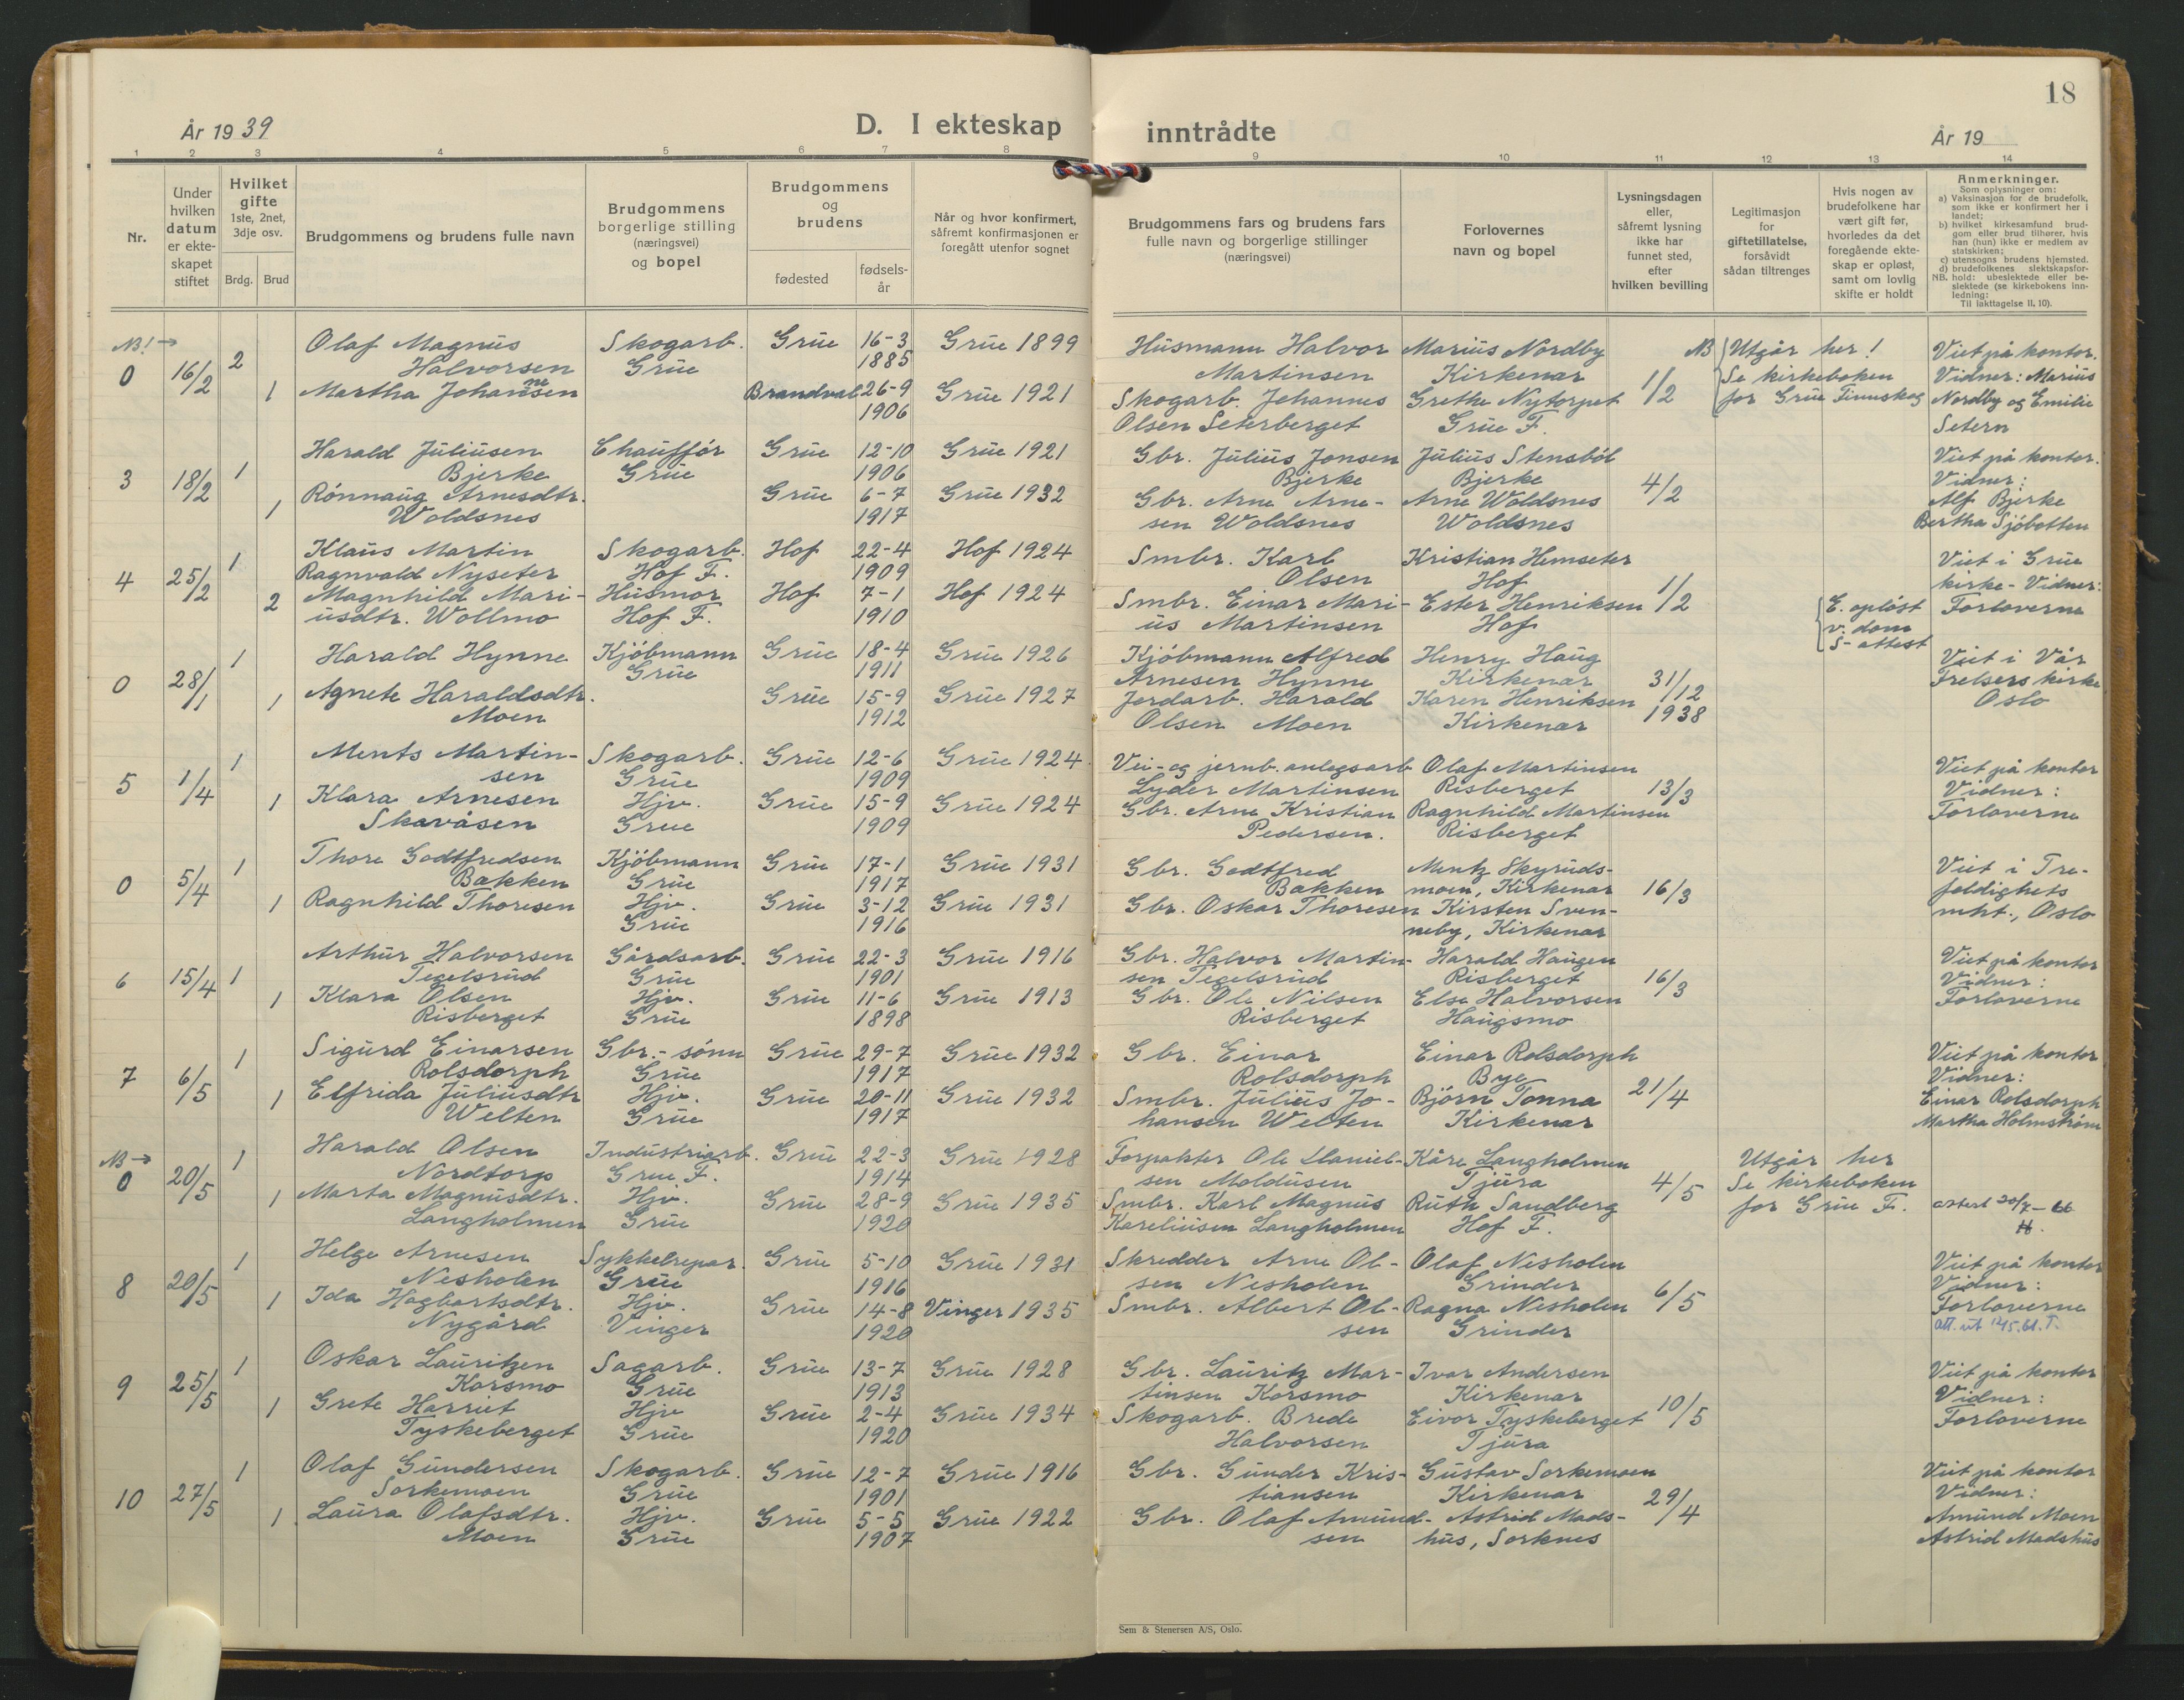 18
År 1939
D. I ekteskap inntrådte
År 19
1 2 3 4 5 6 7 8 9 10 11 12 13 14
Nr.
Under hvilken datum er ekteskapet stiftet
Hvilket gifte 1ste, 2net, 3dje osv.
Brdg. Brud
Brudgommens og brudens fulle navn
Brudgommens borgerlige stilling (næringsvei) og bopel
Brudgommens og brudens
fødested
fødsels-år
Når og hvor konfirmert, såfremt konfirmasjonen er foregått utenfor sognet
Brudgommens fars og brudens fars fulle navn og borgerlige stillinger (næringsvei)
Forlovernes navn og bopel
Lysningsdagen eller, såfremt lysning ikke har funnet sted, efter hvilken bevilling
Legitimasjon for giftetillatelse, forsåvidt sådan tiltrenges
Hvis nogen av brudefolkene har vært gift før, hvorledes da det foregående ekteskap er opløst, samt om lovlig skifte er holdt
Anmerkninger.
Som oplysninger om:
a) Vaksinasjon for de brudefolk, som ikke er konfirmert her i landet;
b) hvilket kirkesamfund brudgom eller brud tilhører, hvis han (hun) ikke er medlem av statskirken;
c) utensogns brudens hjemsted.
d) brudefolkenes slektskapsforhold: ubeslektede eller beslektede (se kirkebokens innledning:
NB.
Til iakttagelse II, 10).
NB! →
Olaf Magnus Skogarb. Grue 16-3 Grue 1899 Husmann Halvor Marius Nordby NB Utgår her! Viet på kontor.
0 16/2 2 Halvorsen Grue 1885 Martinsen Kirkenær 1/2 Se kirkeboken Vidner: Marius
1 Martha Johannesen Brandval 26-9 Grue 1921 Skogarb. Johannes Grethe Nytorpet for Grue Finnskog Nordby og Emilie
1906 Olsen Seterberget Grue F. Setern
Harald Juliusen Chauffør Grue 12-10 Grue 1921 Gbr. Julius Jonsen Julius Stensbøl Viet på kontor.
3 18/2 1 Bjerke Grue 1906 Bjerke Bjerke 4/2 Vidner:
1 Rønnaug Arnesdtr. Grue 6-7 Grue 1932 Gbr. Arne Arne- Arne Woldsnes Alf Bjerke
Woldsnes 1917 sen Woldsnes Woldsnes Bertha Sjøbotten
Klaus Martin Skogarb. Hof 22-4 Hof 1924 Smbr. Karl Kristian Hemseter Viet i Grue
4 25/2 1 Ragnvald Nyseter Hof F. 1909 Olsen Hof 1/2 kirke - Vidner:
2 Magnhild Mari- Husmor Hof 7-1 Hof 1924 Smbr. Einar Mari- Ester Henriksen E. opløst Forloverne
usdtr. Wollmo Hof F. 1910 us Martinsen Hof v. dom
S-attest
Harald Hynne Kjøbmann Grue 18-4 Grue 1926 Kjøbmann Alfred Henry Haug Viet i Vår
0 28/1 1 Grue 1911 Arnesen Hynne Kirkenær 31/12 Frelsers kirke
1 Agnete Haraldsdtr. Grue 15-9 Grue 1927 Jordarb. Harald Karen Henriksen 1938 Oslo
Moen 1912 Olsen Moen Kirkenær
Ments Martin- Skogarb. Grue 12-6 Grue 1924 Vei- og jernb. anlegsarb Olaf Martinsen Viet på kontor
5 1/4 1 sen Grue 1909 Lyder Martinsen Risberget 13/3 Vidner:
1 Klara Arnesen Hjv. Grue 15-9 Grue 1924 Gbr. Arne Kristian Ragnhild Martinsen Forloverne
Skavåsen Grue 1909 Pedersen. Risberget
Thore Godtfredsen Kjøbmann Grue 17-1 Grue 1931 Gbr. Godtfred Mentz Skyruds- Viet i Tre-
0 5/4 1 Bakken Grue 1917 Bakken moen, Kirkenær 16/3 foldighets
1 Ragnhild Thoresen Hjv. Grue 3-12 Grue 1931 Gbr. Oskar Thoresen Kirsten Sven- mht., Oslo
Grue 1916 neby, Kirkenær
Arthur Halvorsen Gårdsarb. Grue 22-3 Grue 1916 Gbr. Halvor Martin- Harald Haugen Viet på kontor
6 15/4 1 Tegelsrud Grue 1901 sen Tegelsrud Risberget 16/3 Vidner:
1 Klara Olsen Hjv. Grue 11-6 Grue 1913 Gbr. Ole Nilsen Else Halvorsen Forloverne
Risberget Grue 1898 Risberget Haugsmo
Sigurd Einarsen Gbr.-sønn Grue 29-7 Grue 1932 Gbr. Einar Einar Rolsdorph Viet på kontor
7 6/5 1 Rolsdorph Grue 1917 Rolsdorph Bye 21/4 Vidner:
1 Elfrida Juliusdtr Hjv. Grue 20-11 Grue 1932 Smbr. Julius Jo- Bjørn Tonna Einar Rolsdorph
Welten Grue 1917 hansen Welten Kirkenær Martha Holmstrøm
NB →
Harald Olsen Industriarb. Grue 22-3 Grue 1928 Forpakter Ole Daniel- Kåre Langholmen Utgår her
0 20/5 1 Nordtorp Grue F. 1914 sen Moldusen Tjura 4/5 Se kirkeboken
1 Marta Magnusdtr. Hjv. Grue 28-9 Grue 1935 Smbr. Karl Magnus Ruth Sandberg for Grue F. attest 20/7-66
Langholmen Grue 1920 Kareliusen Langholmen Hof F.
Helge Arnesen Sykkelrepar. Grue 5-10 Grue 1931 Skredder Arne Ol- Olaf Nesholen Viet på kontor
8 20/5 1 Nesholen Grue 1916 sen Nesholen Grinder 6/5 Vidner:
1 Ida Hagbartsdtr. Hjv. Grue 14-8 Vinger 1935 Smbr. Albert Ol- Ragna Nesholen Forloverne
Nygård Vinger 1920 sen Grinder att. ut
Oskar Lauritzen Sagarb. Grue 13-7 Grue 1928 Gbr. Lauritz Mar- Ivar Andersen Viet på kontor
9 25/5 1 Korsmo Grue 1913 tinsen Korsmo Kirkenær 10/5 Vidner:
1 Grete Harriet Hjv Grue 2-4 Grue 1934 Skogarb. Brede Eivor Tyskeberget Forloverne
Tyskeberget Grue 1920 Halvorsen Tjura
Olaf Gundersen Skogarb. Grue 12-7 Grue 1916 Gbr. Gunder Kris- Gustav Sorkemoen Viet på kontor
10 27/5 1 Sorkemoen Grue 1901 tiansen Kirkenær 29/4 Vidner:
1 Laura Olafsdtr. Hjv. Grue 5-5 Grue 1922 Gbr. Olaf Amund- Astrid Mads- Amund Moen
Moen Grue 1907 sen hus, Sorknes Astrid Madshus
Sem & Stenersen A/S, Oslo.